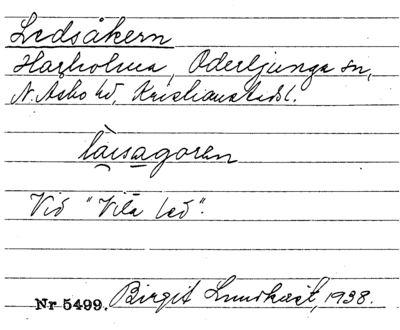 Ledsåkern
Harholma, Oderljunga sn,
N. Åsbo hd, Kristianstads l.
làɪsagoren
Vid "Vita led".
Nr 5499. Birgit Lundkvist, 1938.